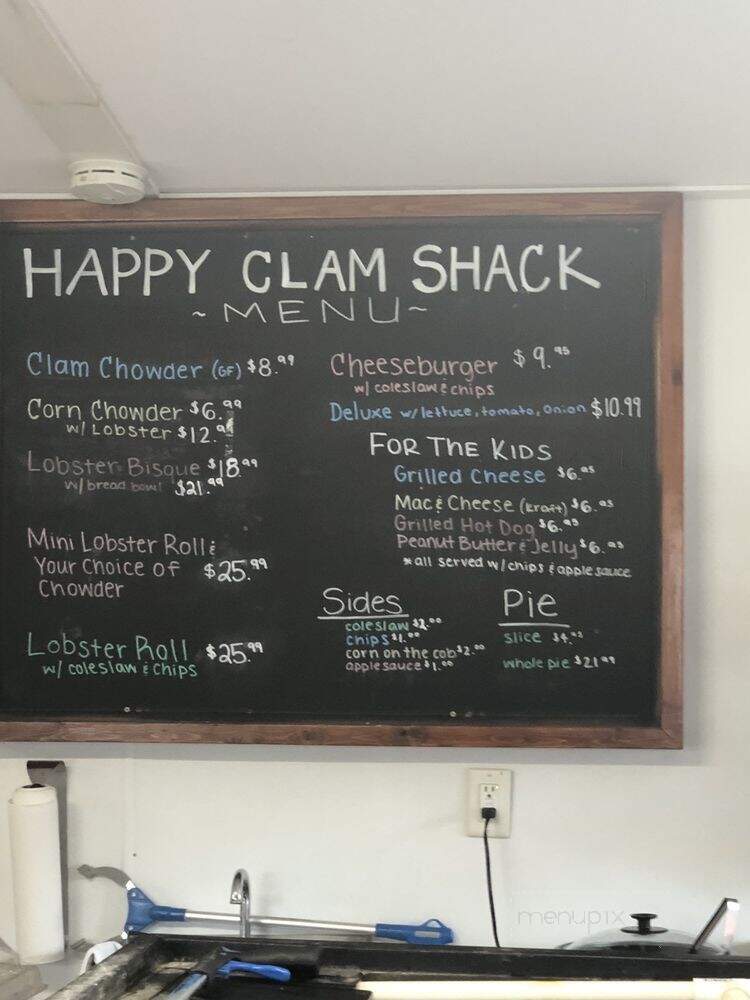 HAPPY CLAM SHACK
~MENU~
Clam Chowder (GF) $8.99
Corn Chowder $6.99
w/ Lobster $12.99
Lobster Bisque $18.99
w/ bread bowl $21.99
Mini Lobster Roll &
Your Choice of $25.99
Chowder
Lobster Roll $25.99
w/ coleslaw & chips
Cheeseburger $9.95
w/ coleslaw & chips
Deluxe w/ lettuce, tomato, onion $10.99
FOR THE KIDS
Grilled Cheese $6.95
Mac & Cheese (Kraft) $6.95
Grilled Hot Dog $6.95
Peanut Butter & Jelly $6.95
*all served w/ chips & apple sauce
Sides
coleslaw $2.00
chips $1.00
corn on the cob $2.00
applesauce $1.00
Pie
slice $4.95
whole pie $21.99
menupix